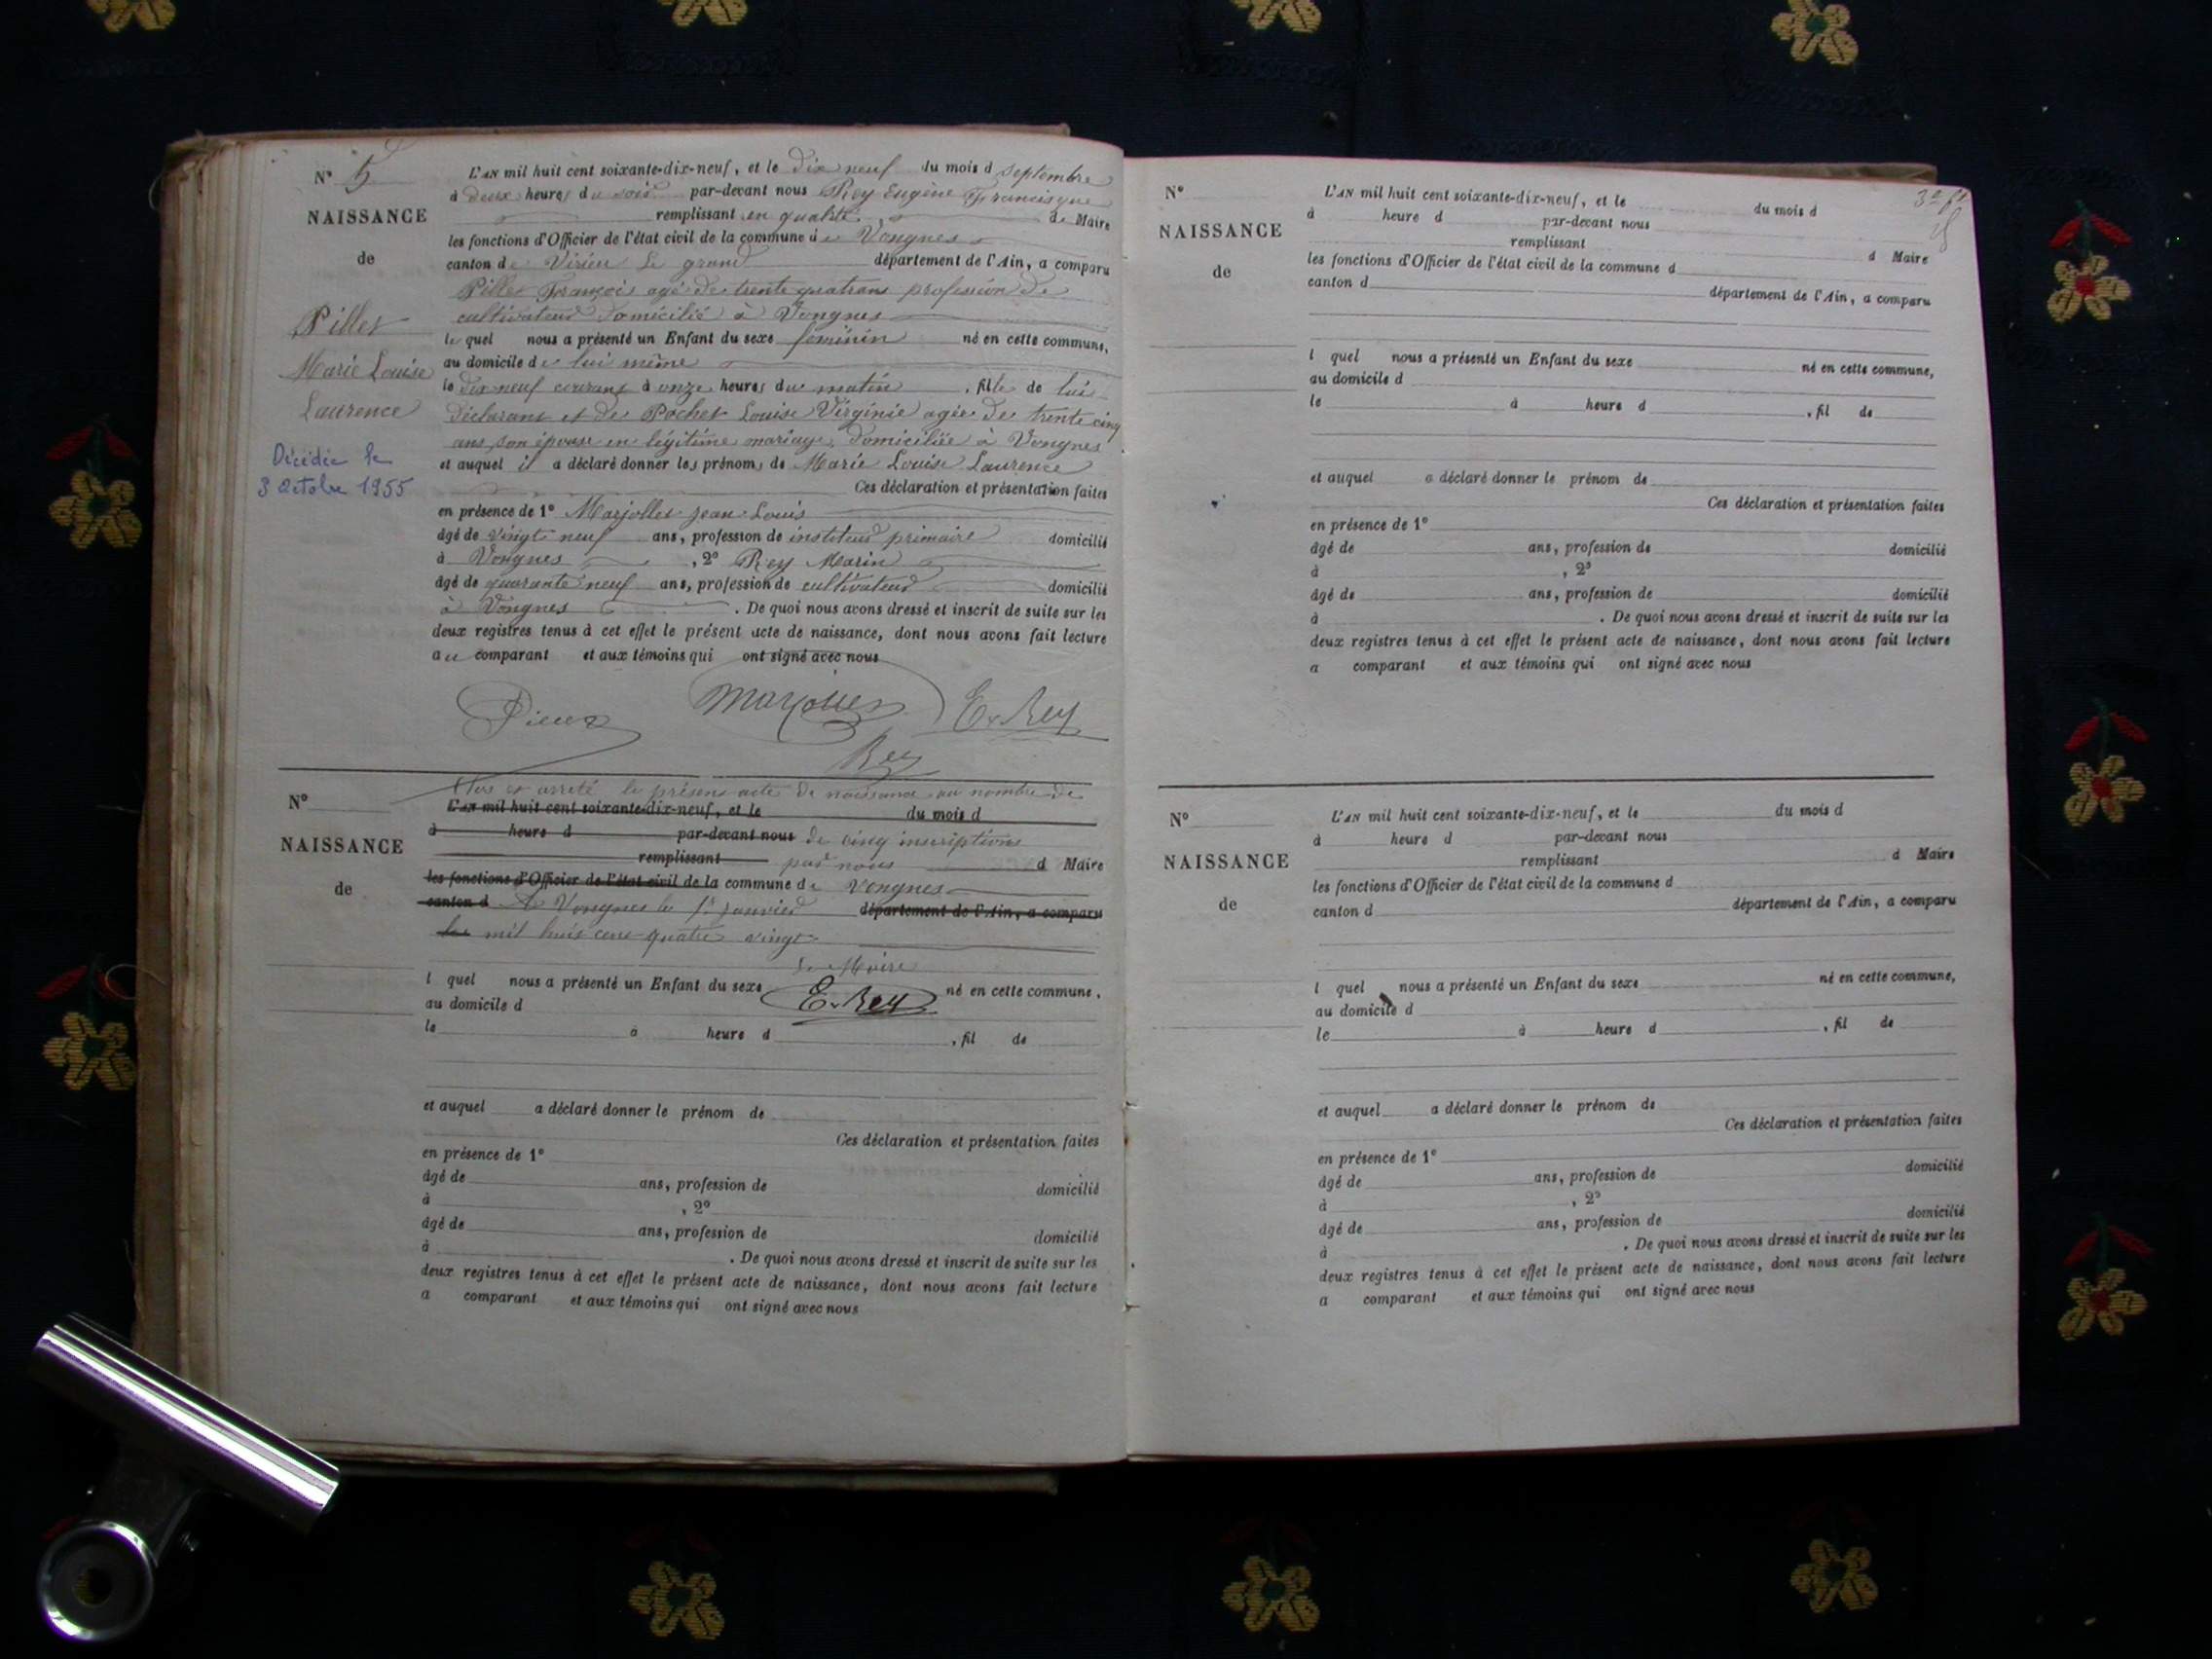 N° 5
NAISSANCE
de
Pillet
Marie Louise
Laurence
Décédée le
3 Octobre 1955
L'AN mil huit cent soixante-dix-neuf, et le dix neuf du mois d septembre
à deux heures du soir par-devant nous Rey Eugène Francisque
remplissant en qualité de Maire
les fonctions d'Officier de l'état civil de la commune de Vongnes
canton de Virieu le grand département de l'Ain, a comparu
Pillet François agé de trente quatre ans profession de
cultivateur domicilié à Vongnes
lequel nous a présenté un Enfant du sexe féminin né en cette commune,
au domicile de lui même
le dix neuf courant à onze heures du matin, fille de lui
déclarant et de Pochet Louise Virginie agée de trente cinq
ans, son épouse en légitime mariage, domiciliée à Vongnes
et auquel il a déclaré donner les prénoms de Marie Louise Laurence
Ces déclaration et présentation faites
en présence de 1° Marjollet Jean Louis
âgé de vingt neuf ans, profession de instituteur primaire domicilié
à Vongnes, 2° Rey Marin
âgé de quarante neuf ans, profession de cultivateur domicilié
à Vongnes. De quoi nous avons dressé et inscrit de suite sur les
deux registres tenus à cet effet le présent acte de naissance, dont nous avons fait lecture
au comparant et aux témoins qui ont signé avec nous
Marjollet E. Rey
Rey
N°
NAISSANCE
de
Clos et arrêté le présent acte de naissance au nombre de
L'AN mil huit cent soixante-dix-neuf, et le du mois d
à heure d par-devant nous de cinq inscriptions
remplissant par nous d Maire
les fonctions d'Officier de l'état civil de la commune de Vongnes
canton d A Vongnes le 1er janvier département de l'Ain, a comparu
mil huit cent quatre vingt
le Maire
l quel nous a présenté un Enfant du sexe E. Rey né en cette commune,
au domicile d
le à heure d , fil de
et auquel a déclaré donner le prénom de
Ces déclaration et présentation faites
en présence de 1°
âgé de ans, profession de domicilié
à , 2°
âgé de ans, profession de domicilié
à . De quoi nous avons dressé et inscrit de suite sur les
deux registres tenus à cet effet le présent acte de naissance, dont nous avons fait lecture
a comparant et aux témoins qui ont signé avec nous
N°
NAISSANCE
de
L'AN mil huit cent soixante-dix-neuf, et le du mois d
à heure d par-devant nous
remplissant d Maire
les fonctions d'Officier de l'état civil de la commune d
canton d département de l'Ain, a comparu
l quel nous a présenté un Enfant du sexe né en cette commune,
au domicile d
le à heure d , fil de
et auquel a déclaré donner le prénom de
Ces déclaration et présentation faites
en présence de 1°
âgé de ans, profession de domicilié
à , 2°
âgé de ans, profession de domicilié
à . De quoi nous avons dressé et inscrit de suite sur les
deux registres tenus à cet effet le présent acte de naissance, dont nous avons fait lecture
a comparant et aux témoins qui ont signé avec nous
N°
NAISSANCE
de
L'AN mil huit cent soixante-dix-neuf, et le du mois d
à heure d par-devant nous
remplissant d Maire
les fonctions d'Officier de l'état civil de la commune d
canton d département de l'Ain, a comparu
l quel nous a présenté un Enfant du sexe né en cette commune,
au domicile d
le à heure d , fil de
et auquel a déclaré donner le prénom de
Ces déclaration et présentation faites
en présence de 1°
âgé de ans, profession de domicilié
à , 2°
âgé de ans, profession de domicilié
à . De quoi nous avons dressé et inscrit de suite sur les
deux registres tenus à cet effet le présent acte de naissance, dont nous avons fait lecture
a comparant et aux témoins qui ont signé avec nous